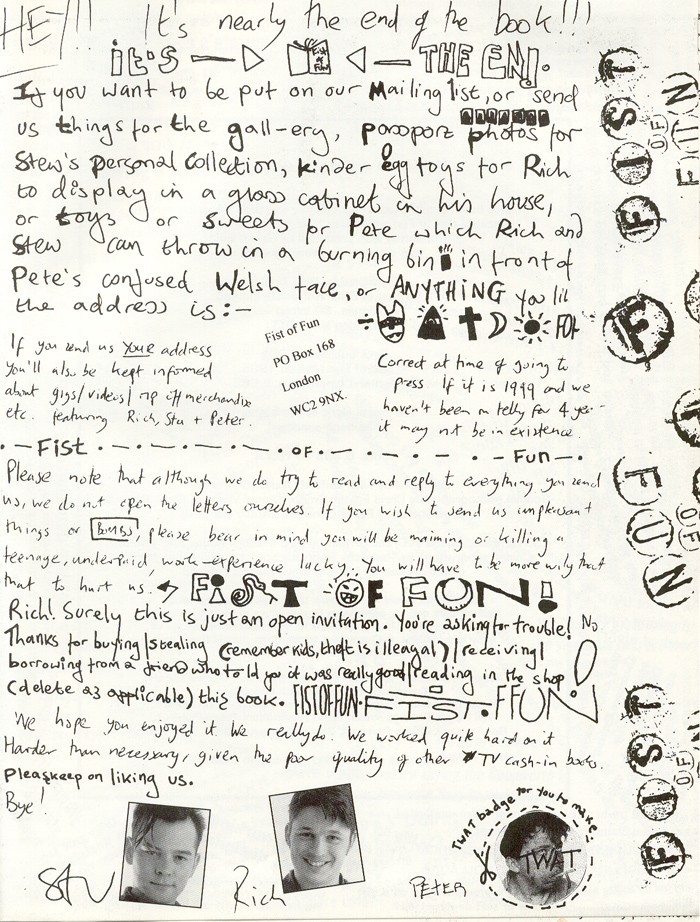 HEY!!
It's nearly the end of the book!!!
iT'S Fist of Fun THE END.
If you want to be put on our Mailing list, or send
us things for the gall-ery, passport photos for
Stew's personal collection, kinder egg toys for Rich
to display in a glass cabinet in his house,
or toys or sweets for Pete which Rich and
Stew can throw in a burning bin in front of
Pete's confused Welsh face, or ANYTHING you lik
the address is:-
FOF
If you send us your address
you'll also be kept informed
about gigs/videos/rip off merchandise
etc. featuring Rich, Stu + Peter.
Fist of Fun
PO Box 168
London
WC2 9NX.
Correct at time of going to
press If it is 1999 and we
haven't been on telly for 4 year
it may not be in existence.
FIST OF FUN
Please note that although we do try to read and reply to everything you send
us, we do not open the letters ourselves. If you wish to send us unpleasant
things or BOMBS, please bear in mind you will be maiming or killing a
teenage, underpaid, work-experience lackey. You will have to be more wily that
that to hurt us. FiST OF FUN!
Rich! Surely this is just an open invitation. You're asking for trouble! No
Thanks for buying/stealing (remember kids, theft is illeagal)/receiving/
borrowing from a friend who told you it was really good/reading in the shop
(delete as applicable) this book. FIST OF FUN. FIST. FFUN!
We hope you enjoyed it. We really do. We worked quite hard on it
Harder than necessary, given the poor quality of other TV cash-in books.
Pleaskeep on liking us.
Bye!
STU
Rich
PETER
TWAT badge for you to make.
TWAT
FIST OF FUN
FIST OF FUN
FIST OF